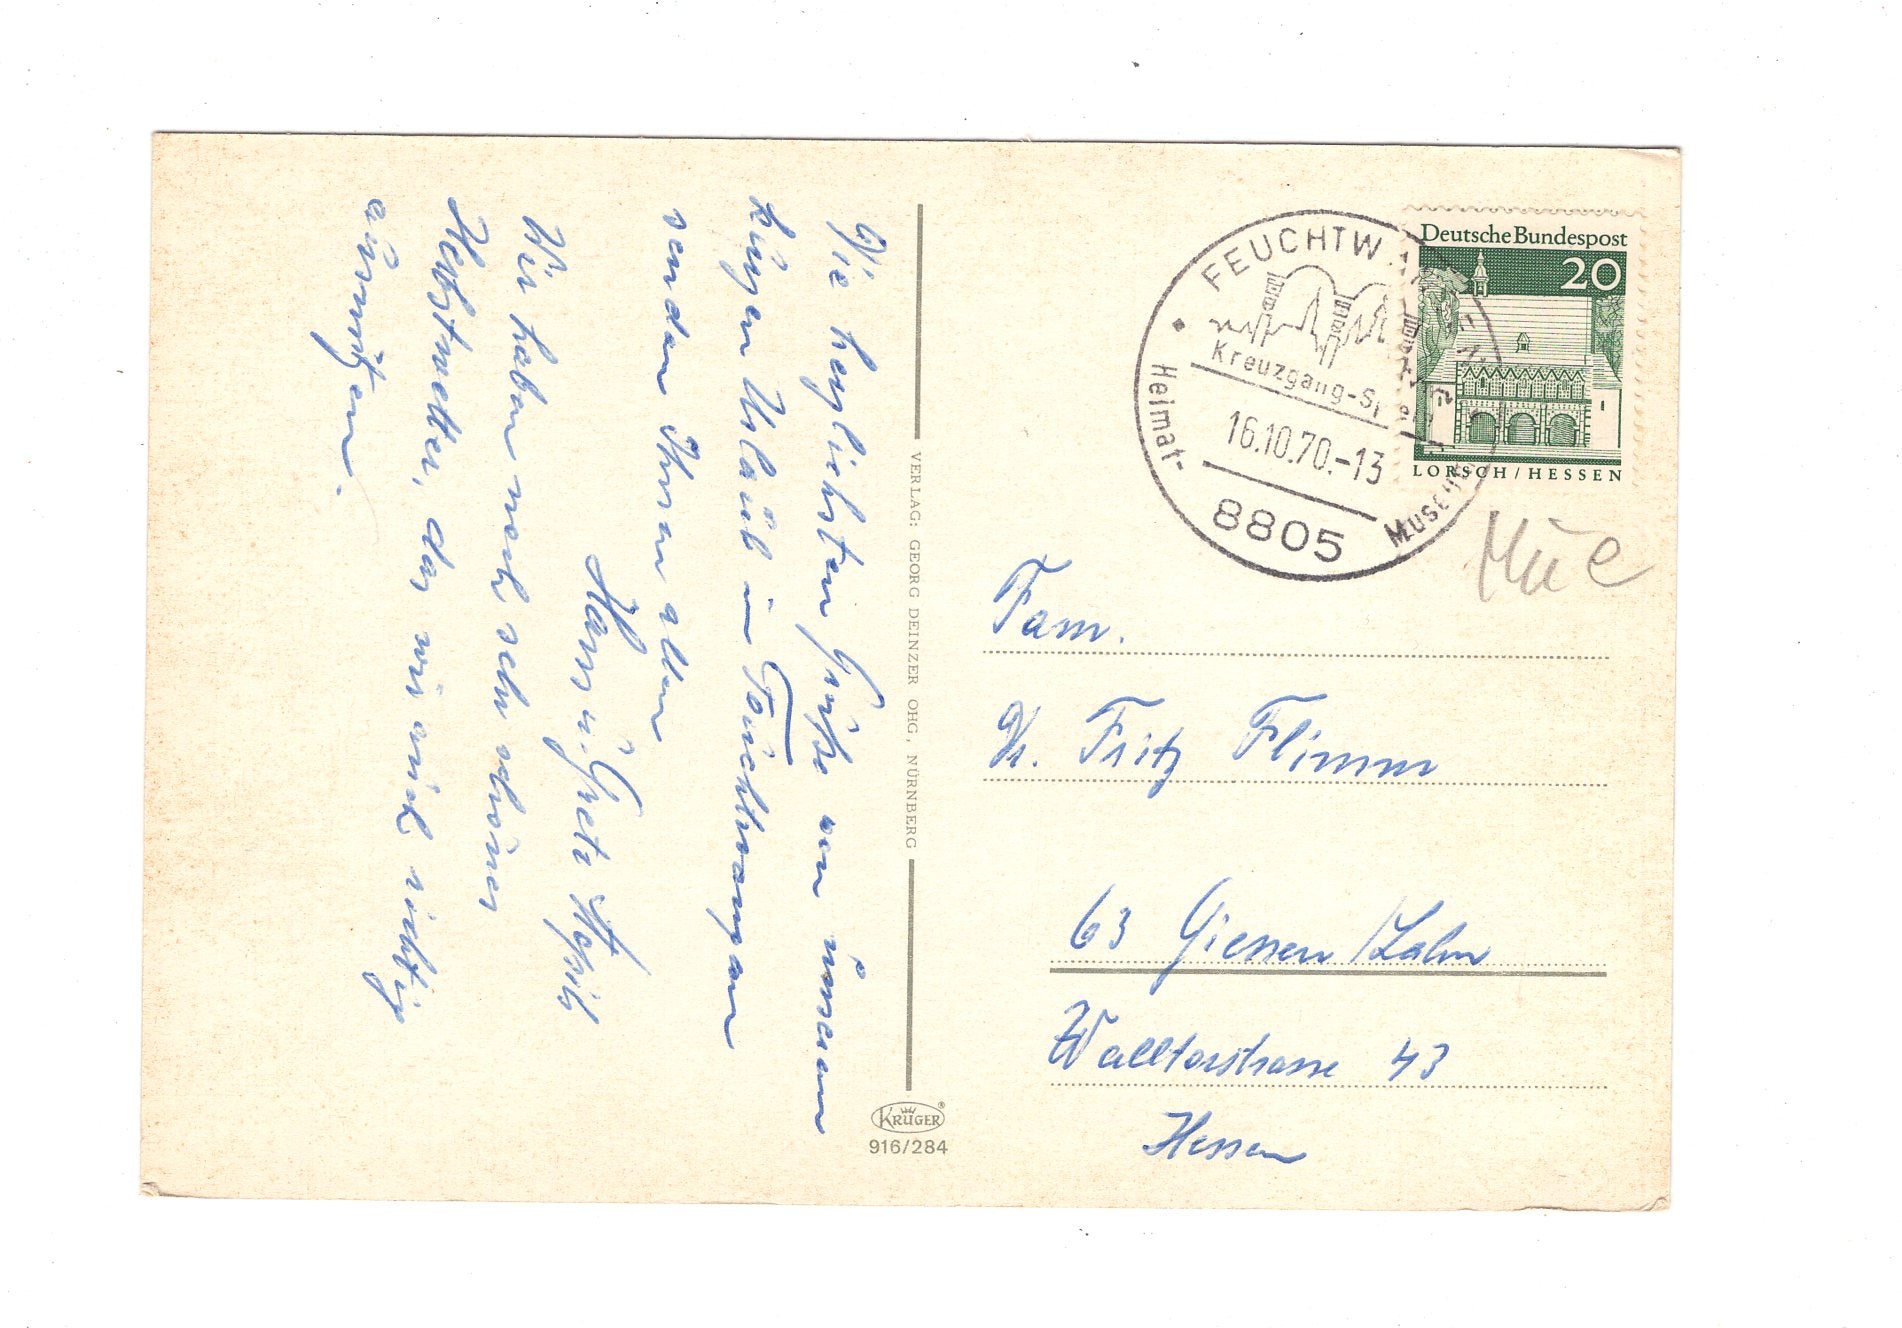 Die herzlichsten Grüße von unserem
kurzen Urlaub in Feuchtwangen
senden Ihnen allen
Hans u. Greta
Wir haben noch sehr schönes
Herbstwetter, das wir auch richtig
ausnützen.
VERLAG: GEORG DEINZER OHG, NÜRNBERG
KRÜGER®
916/284
FEUCHTWANGEN
Kreuzgang-Spiele
16.10.70.-13
8805
Heimat-
Museum
Deutsche Bundespost
20
LORSCH/HESSEN
Mūe
Fam.
Dr. Fritz Flimm
63 Giessen/Lahn
Walltorstrasse 43
Hessen